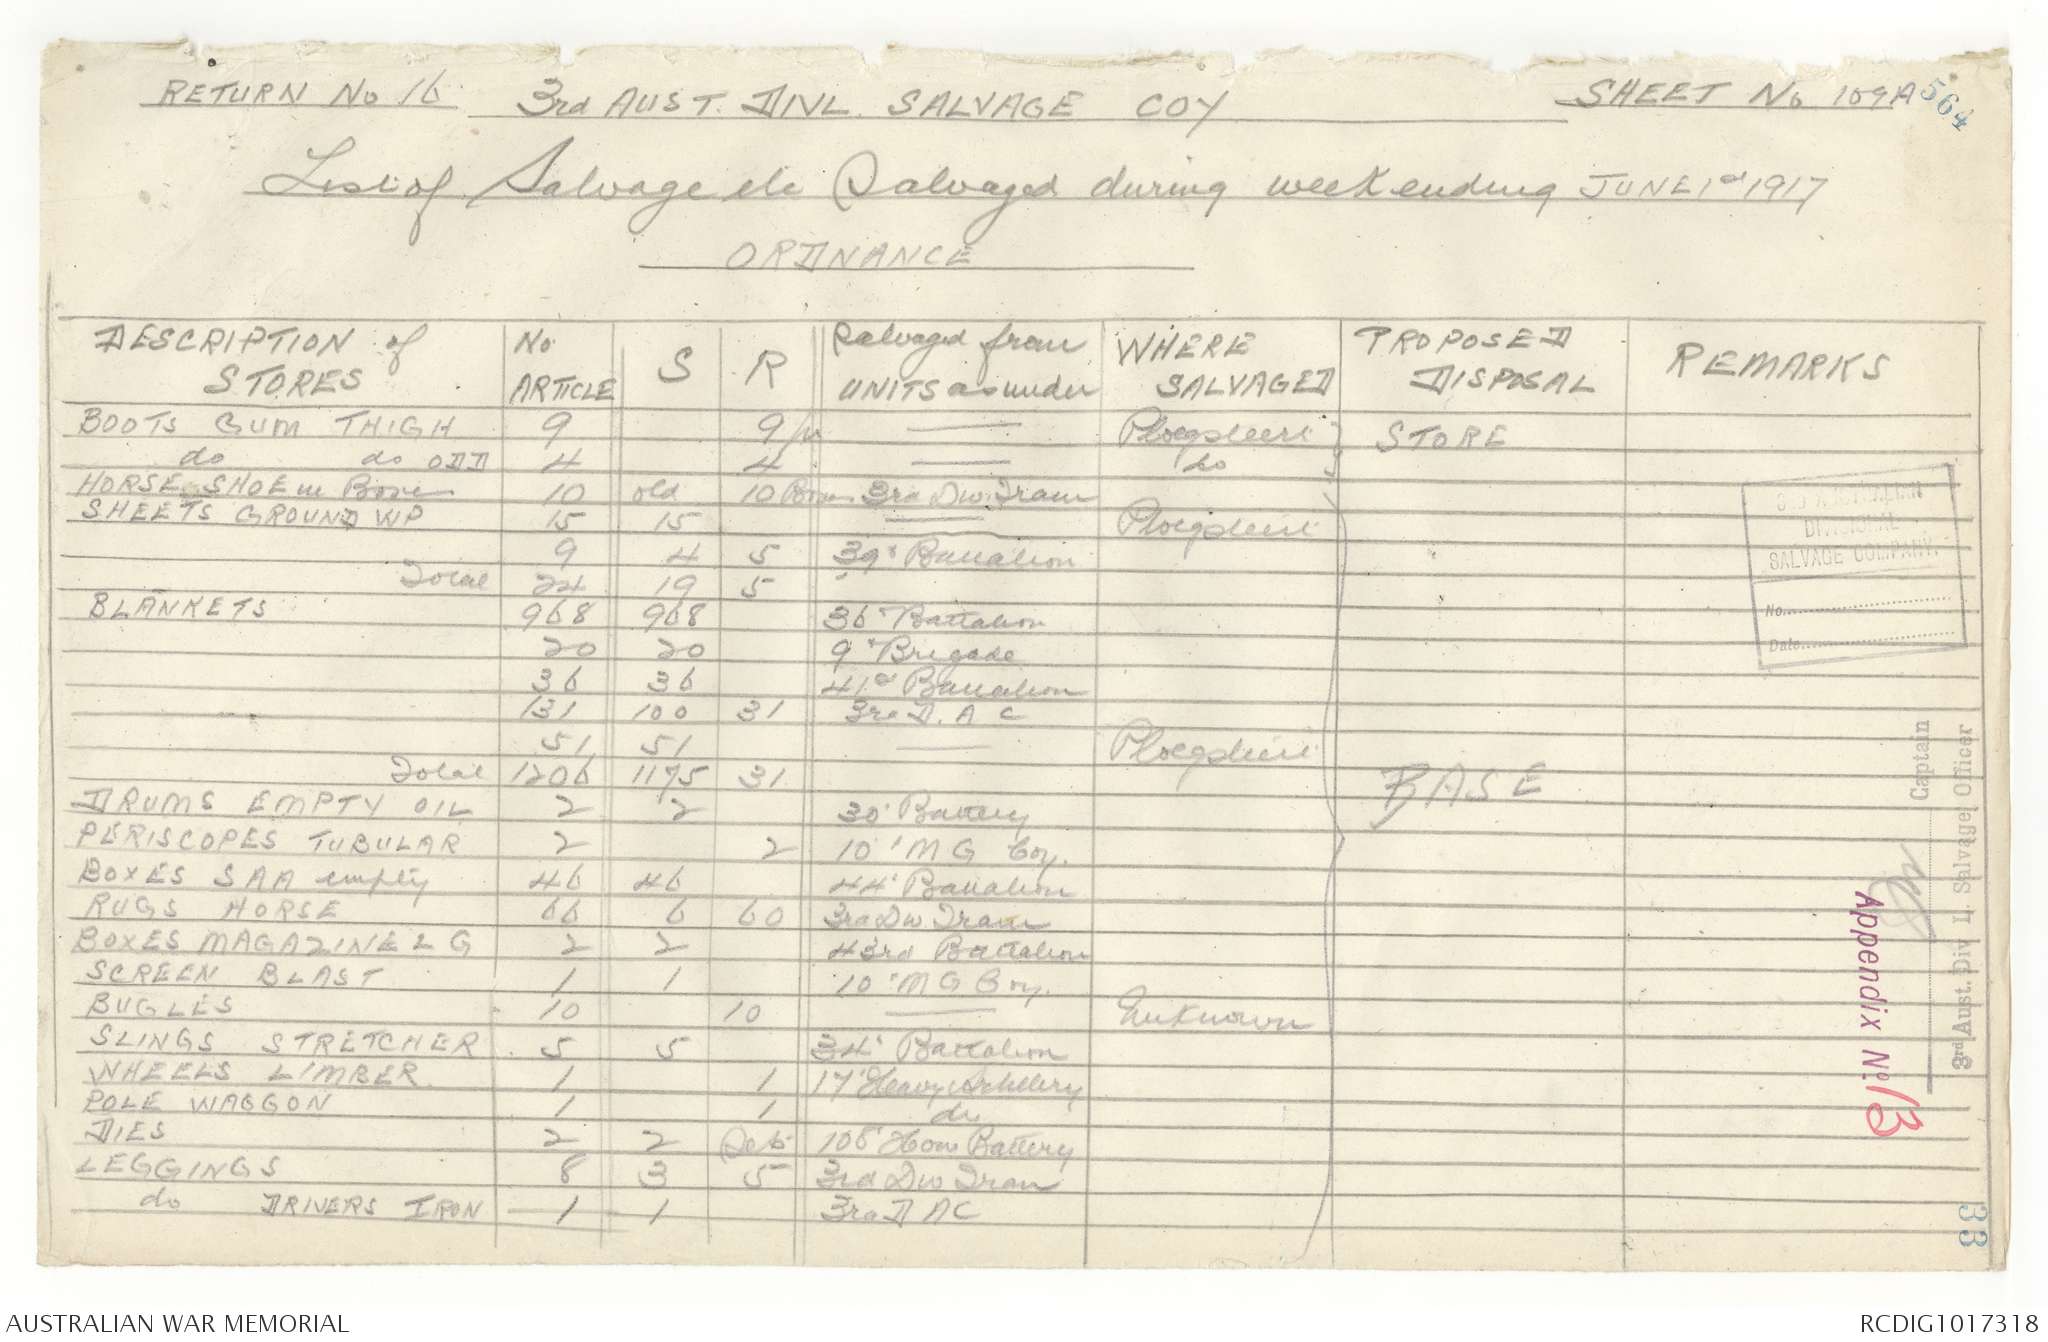 RETURN No 16 3rd AUST. DIVL. SALVAGE COY SHEET No 109A 564
List of Salvage etc Salvaged during week ending JUNE 1st 1917
ORDNANCE
DESCRIPTION of STORES No ARTICLE S R Salvaged from UNITS as under WHERE SALVAGED PROPOSED DISPOSAL REMARKS
BOOTS GUM THIGH 9 9 — Ploegsteert STORE
do do ODD 4 4 — do
HORSE SHOE in Boxes 10 old 10 Boxes 3rd Div. Train
SHEETS GROUND WP 15 15 — Ploegsteert
9 4 5 39' Battalion
Total 24 19 5
BLANKETS 968 968 36' Battalion
20 20 9' Brigade
36 36 41st Battalion
131 100 31 3rd D. A C
51 51 — Ploegsteert
Total 1206 1175 31 BASE
DRUMS EMPTY OIL 2 2 30' Battery
PERISCOPES TUBULAR 2 2 10' M G Coy.
BOXES SAA empty 46 46 44' Battalion
RUGS HORSE 66 6 60 3rd Div Train
BOXES MAGAZINE L G 2 2 43rd Battalion
SCREEN BLAST 1 1 10' M G Coy.
BUGLES 10 10 — Unknown
SLINGS STRETCHER 5 5 34' Battalion
WHEELS LIMBER 1 1 17' Heavy Artillery
POLE WAGGON 1 1 do
DIES 2 2 108' How Battery
LEGGINGS 8 3 5 3rd Div Train
do DRIVERS IRON 1 1 3rd D AC
3RD AUSTRALIAN
DIVISIONAL
SALVAGE COMPANY.
No.
Date
Captain
3rd Aust. Div L. Salvage Officer
Appendix No. 13
33
AUSTRALIAN WAR MEMORIAL RCDIG1017318